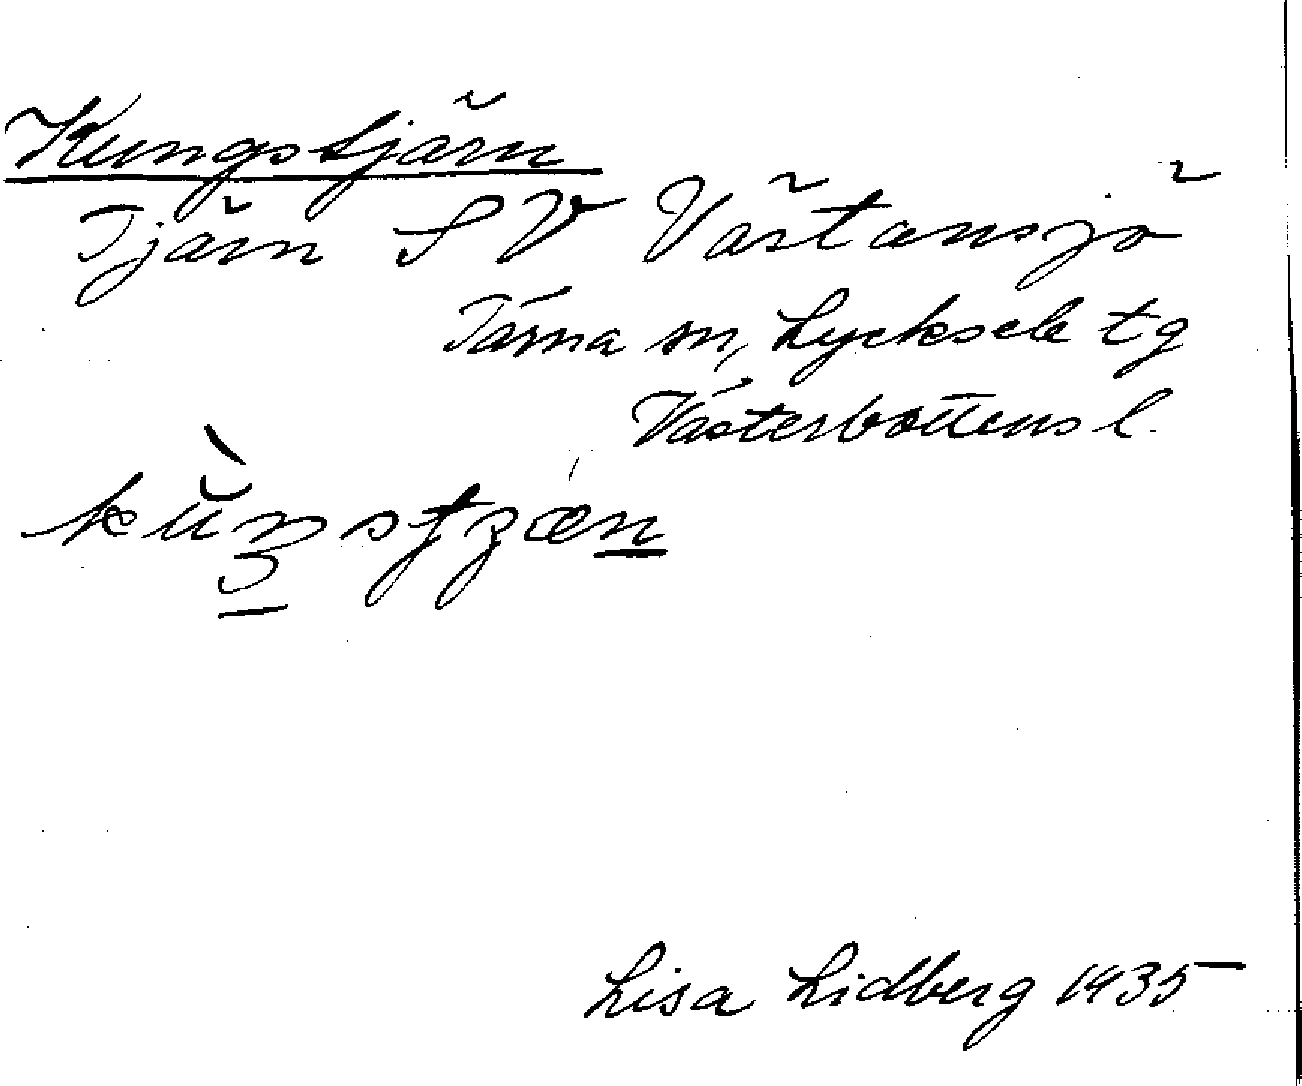 Kungstjärn
Tjärn SV Västansjö
Tärna sn, Lycksele tg
Västerbottens l.
Lisa Lidberg 1935